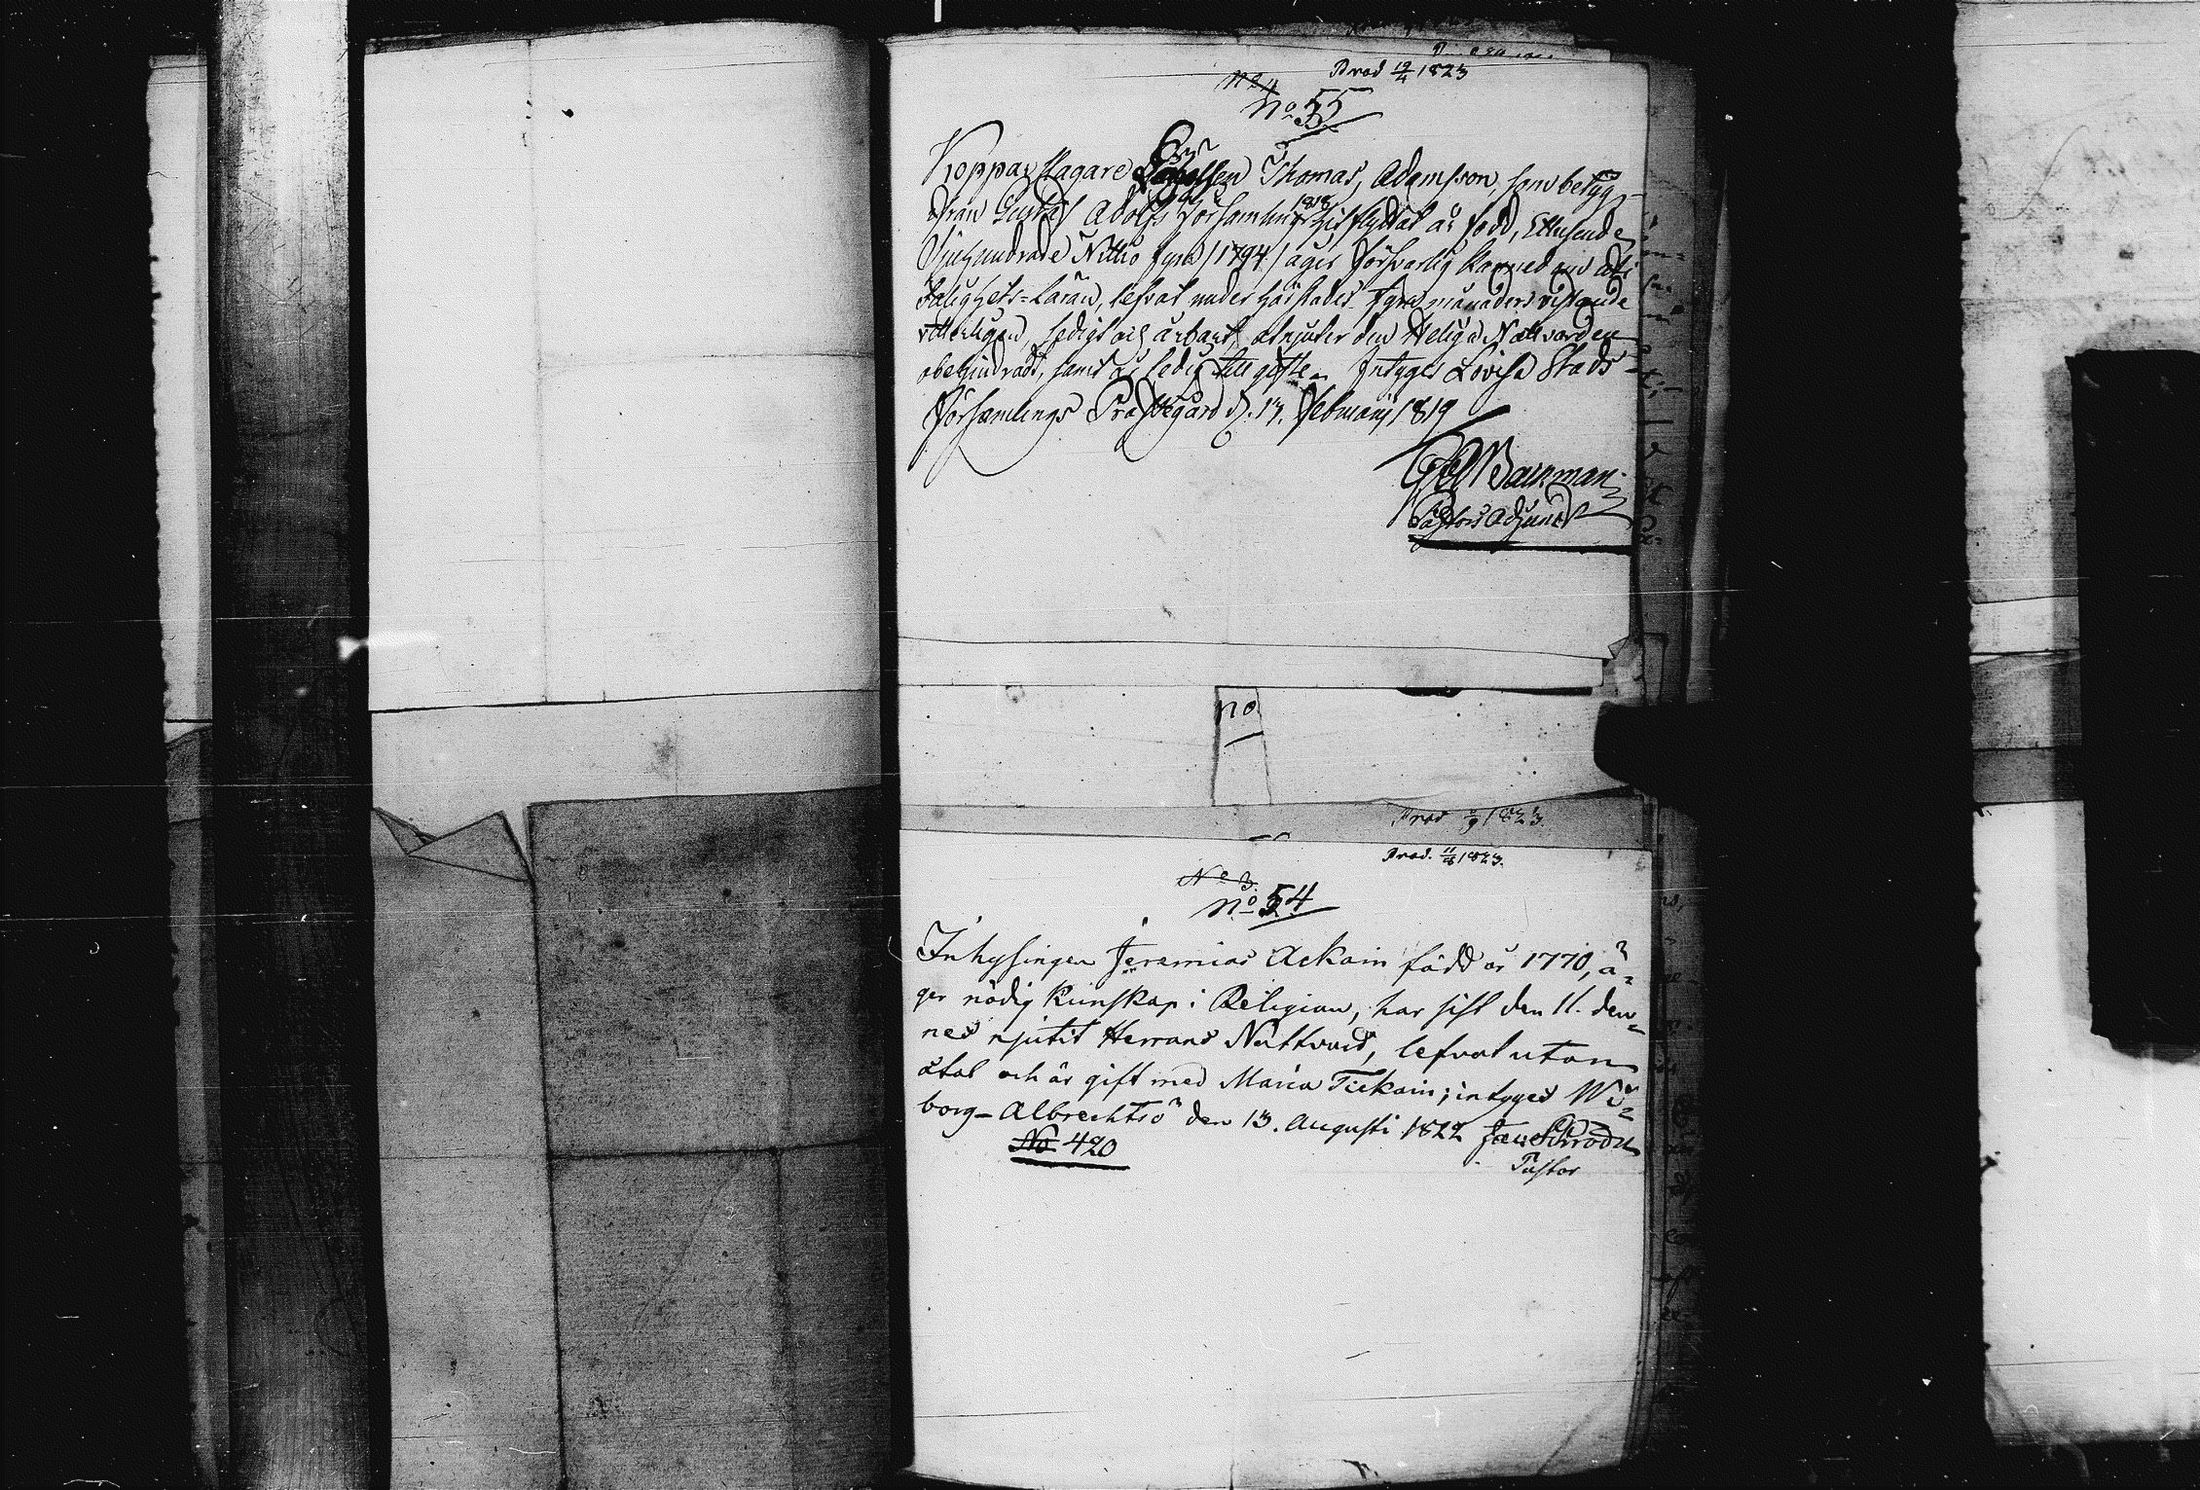 Prod 19/4 1823
No 4
No 55
Kopparslagare Gesellen Thomas, Adamsson, som betyg
ifrån Gustaf Adolfs Församling 1818 hit flyttat är född, Ettusende
Sjuhundrade Nittio fyra /1794./ äger försvarlig kannedom uti
Salighets-Läran, lefvat under härstädes fyra månaders vistande
vitterligen, sedigt och ärbart, åtnjuter den Heliga Nattvarden
obehindradt, samt är ledig till gifte. Intygar Lovisa Stads
Församlings Prästegård d. 13. Februarij 1819
Backman
Pastors Adjunct
no
Prod 1823.
Prod. 11/8 1823.
No 3.
No 54
Inhysingen Jeremias Ackain född år 1770, ä-
ger nödig kunskap i Religion, har sist den 11. den-
nes njutit Herrans Nattvard, lefvat utan
åtal och är gift med Maria Tiekain; intyges Wi-
borg - Albrechtsö den 13. Augusti 1822
No 420
Pastor